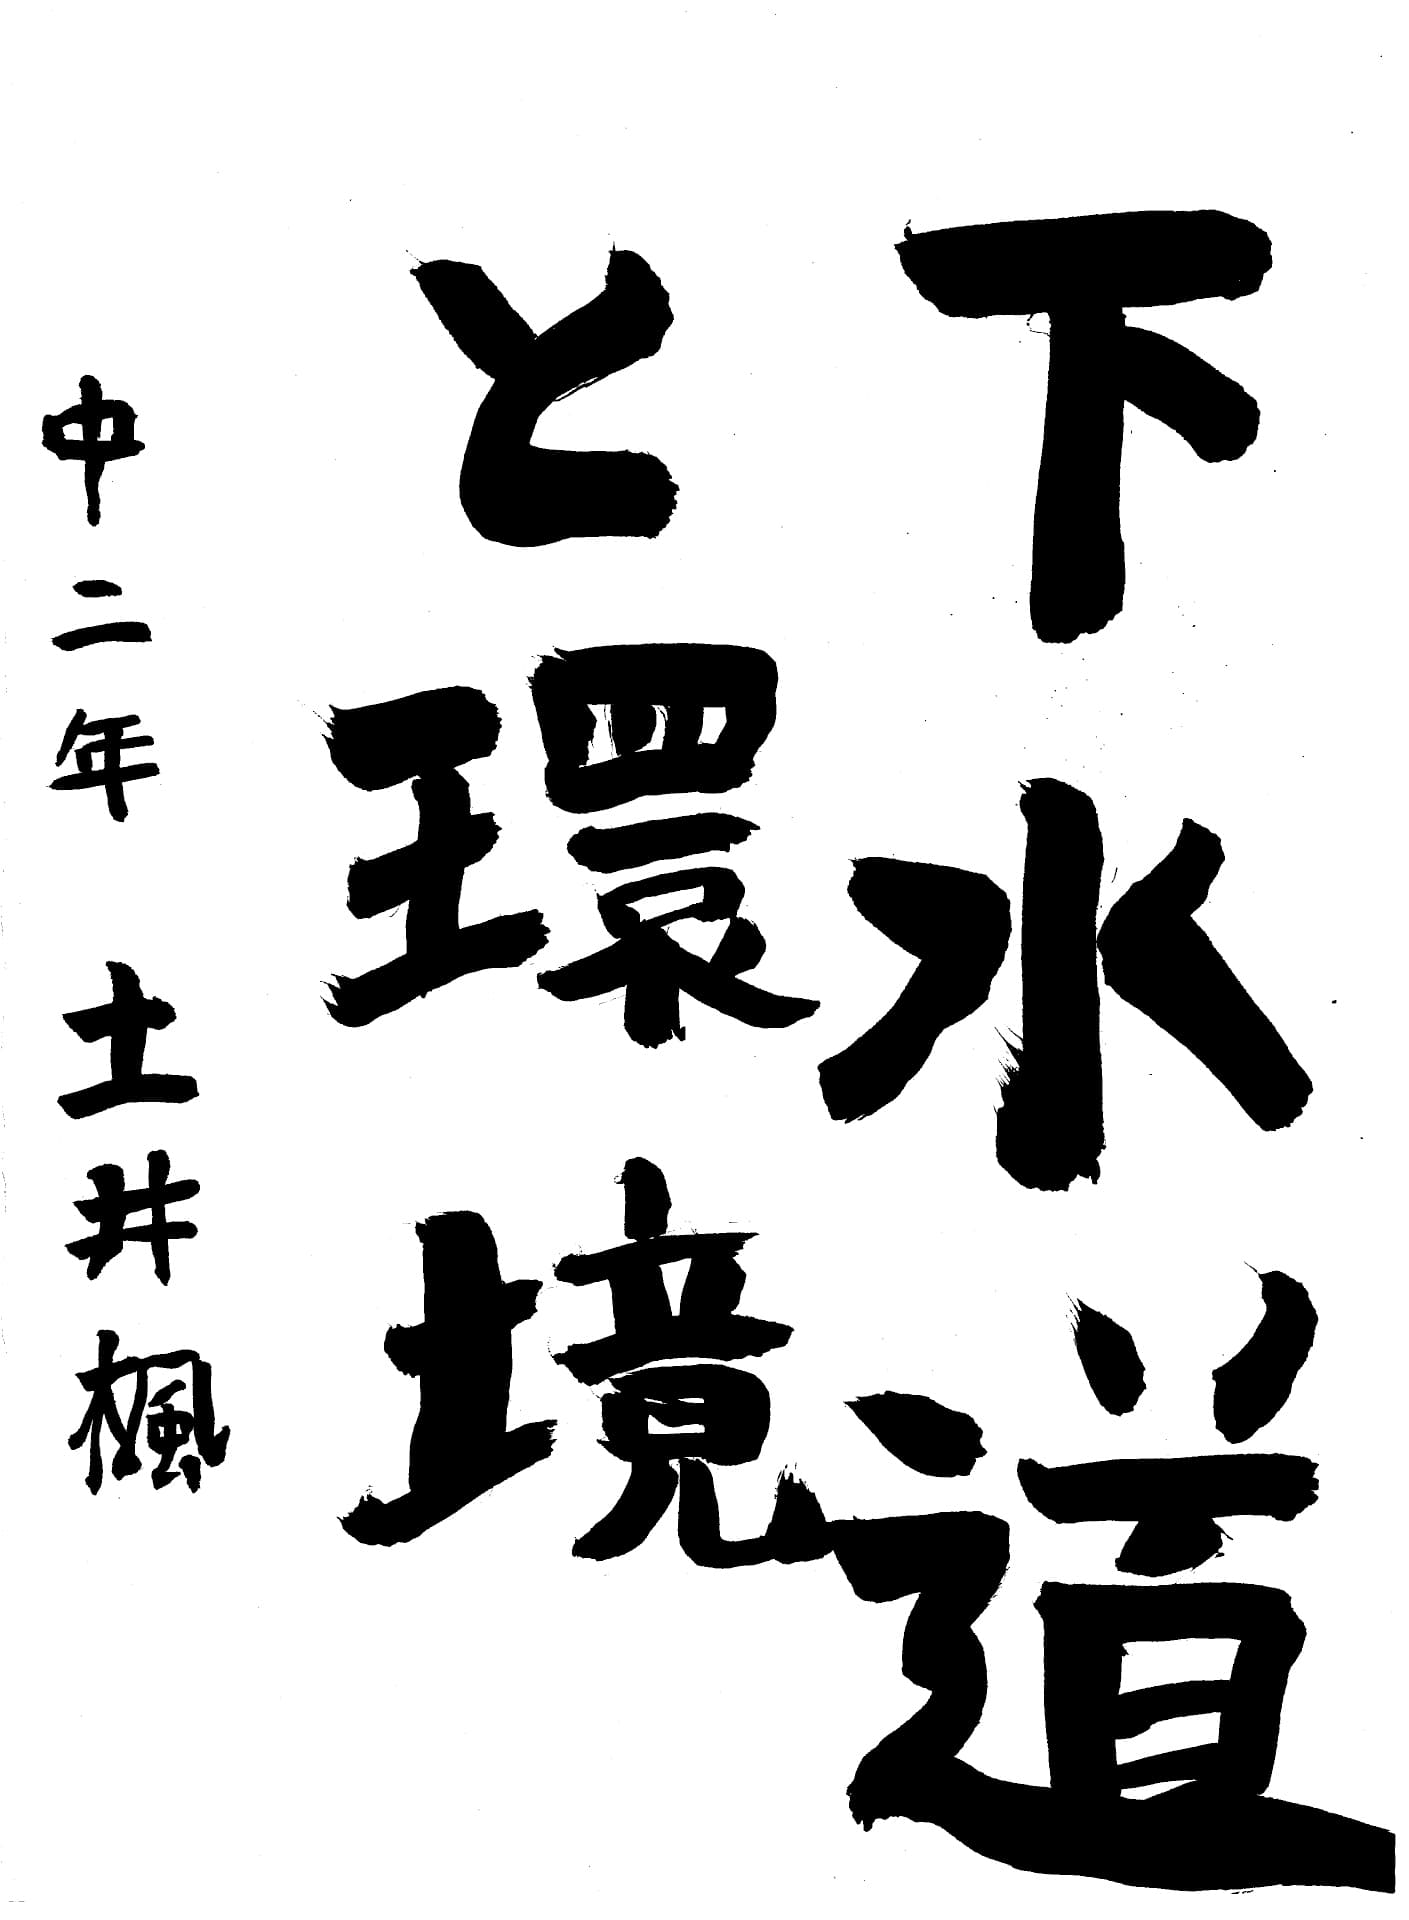 下水道
と環境
中二年 土井楓